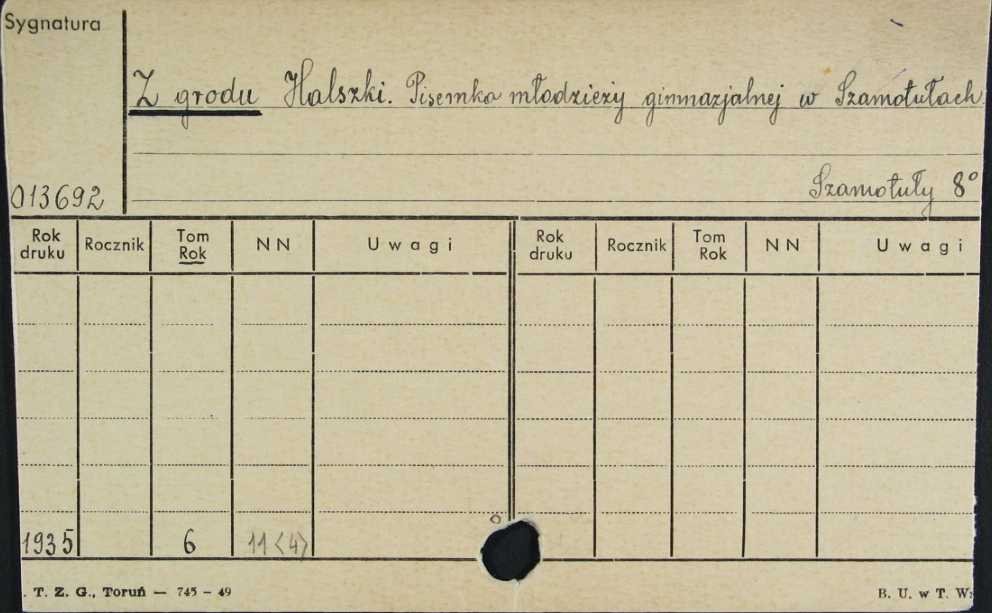 Sygnatura
Z grodu Halszki. Pisemko młodzieży gimnazjalnej w Szamotułach.
Szamotuły 8°
013692
Rok druku Rocznik Tom Rok NN Uwagi Rok druku Rocznik Tom Rok NN Uwagi
1935 6 11 <4>
. T. Z. G., Toruń — 745 – 49 B. U. w T. W